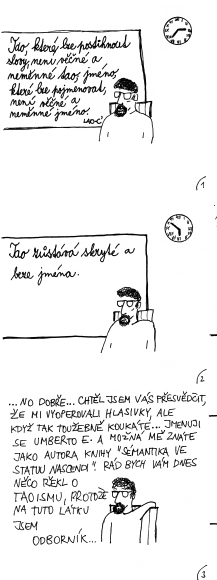 Tao, které lze postihnout
slovy, není věčné a
neměnné tao, jméno,
které lze pojmenovat,
není věčné a
neměnné jméno.
LAO-C'
1
Tao zůstává skryté a
beze jména.
2
...NO DOBŘE... CHTĚL JSEM VÁS PŘESVĚDČIT,
ŽE MI VYOPEROVALI HLASIVKY, ALE
KDYŽ TAK TOUŽEBNĚ KOUKÁTE... JMENUJI
SE UMBERTO E. A MOŽNÁ MĚ ZNÁTE
JAKO AUTORA KNIHY "SÉMANTIKA VE
STATUU NASCENDI". RÁD BYCH VÁM DNES
NĚCO ŘEKL O
TAOISMU, PROTOŽE
NA TUTO LÁTKU
JSEM
ODBORNÍK...
3